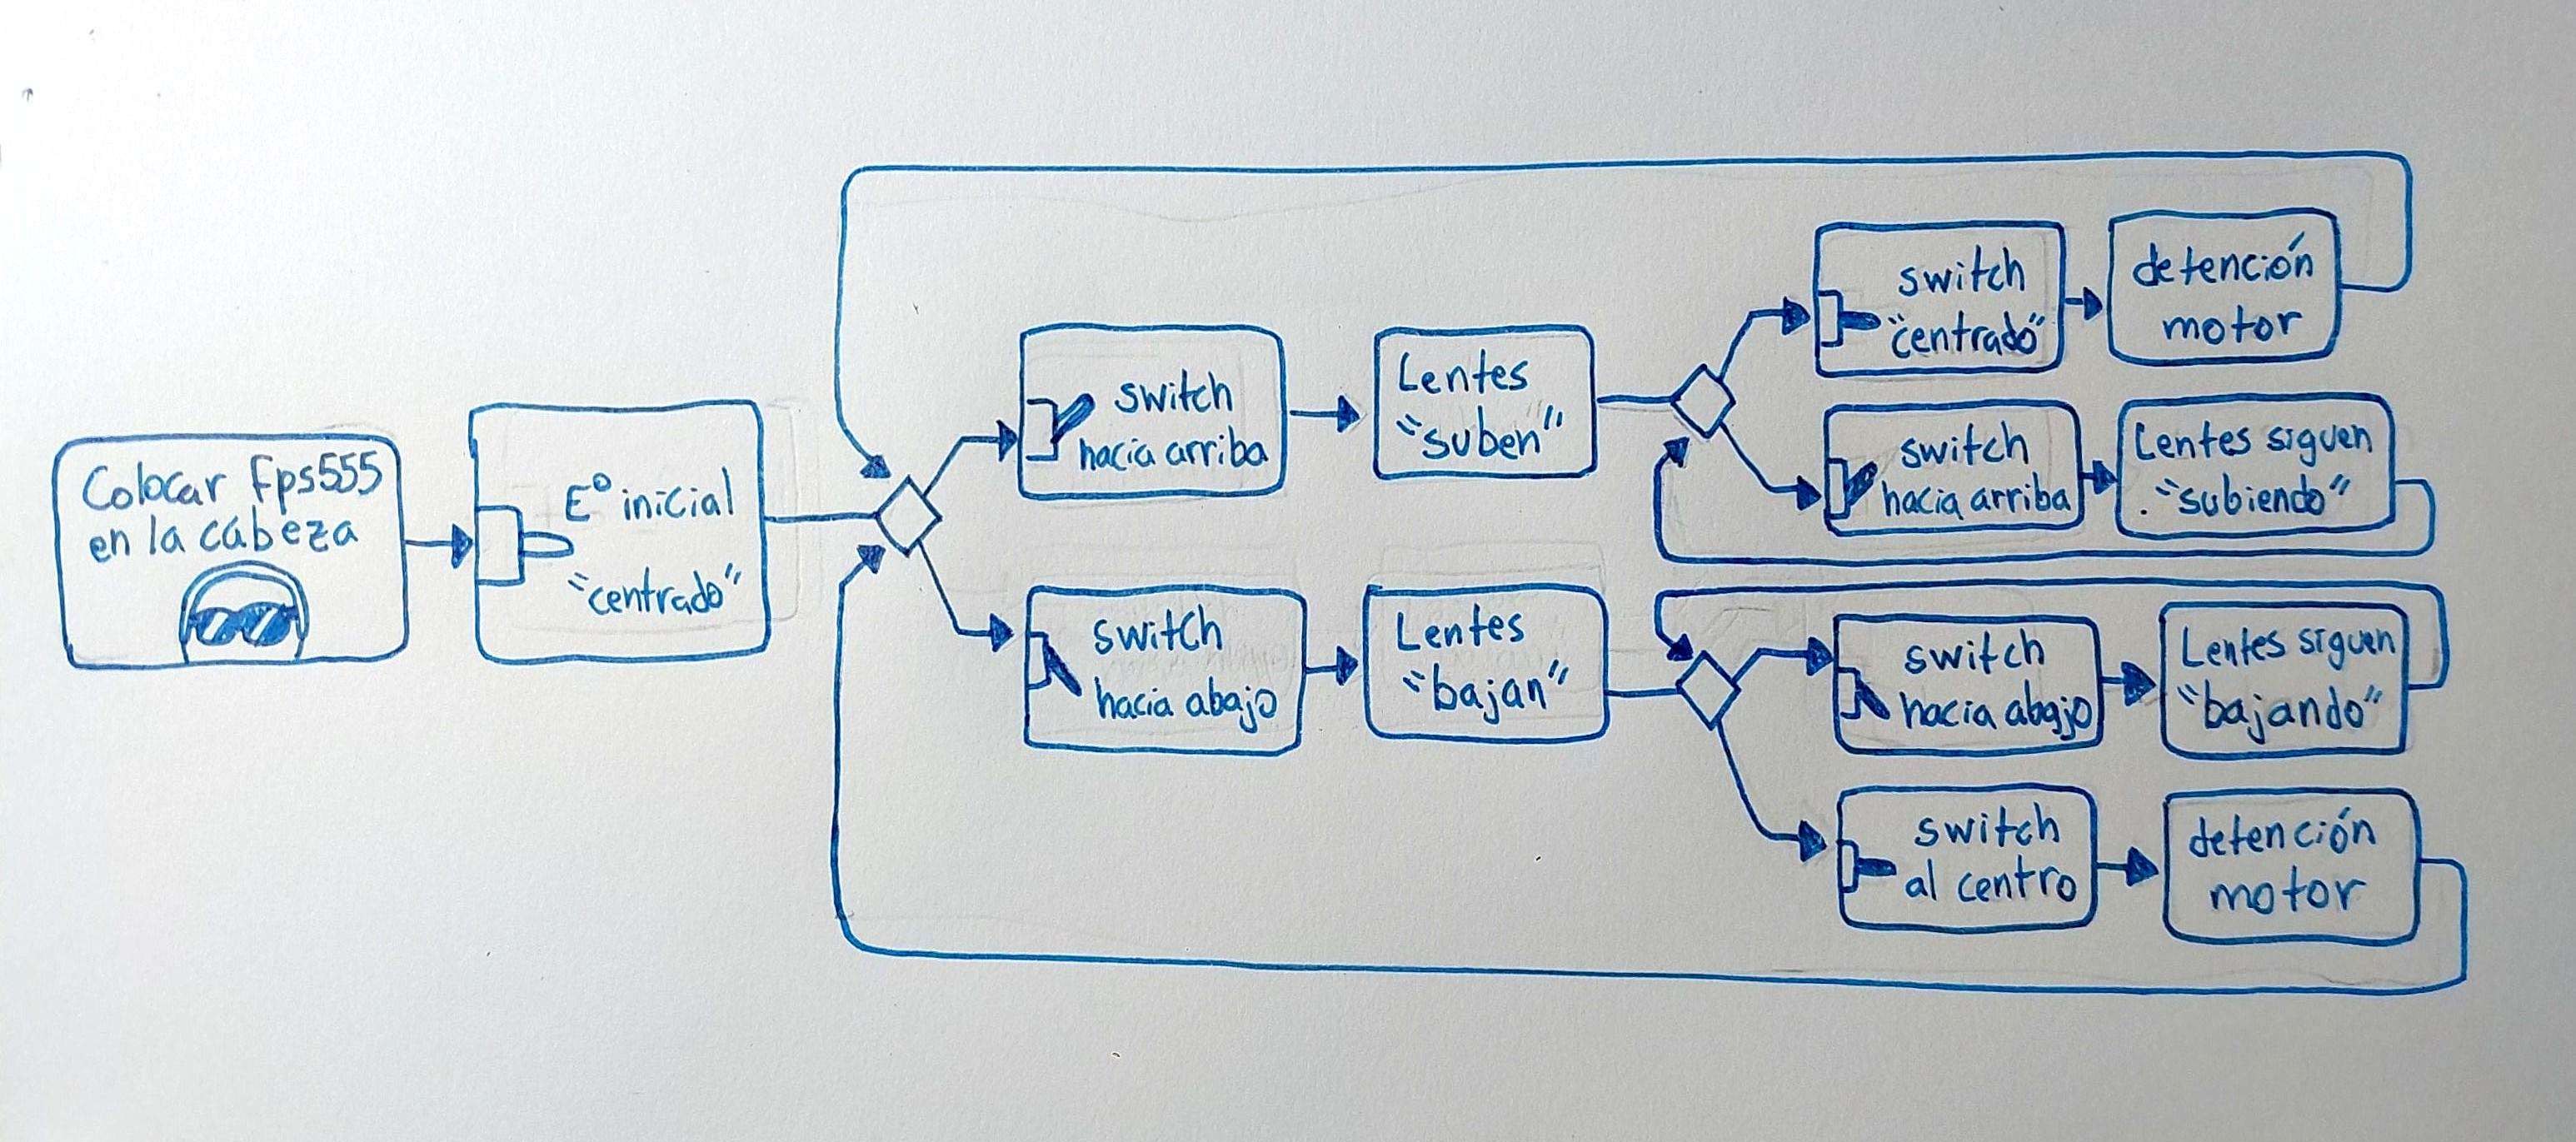 Colocar Fps555
en la cabeza
E° inicial
"centrado"
switch
hacia arriba
Lentes
"suben"
switch
"centrado"
detención
motor
switch
hacia arriba
Lentes siguen
."subiendo"
switch
hacia abajo
Lentes
"bajan"
switch
hacia abajo
Lentes siguen
"bajando"
switch
al centro
detención
motor